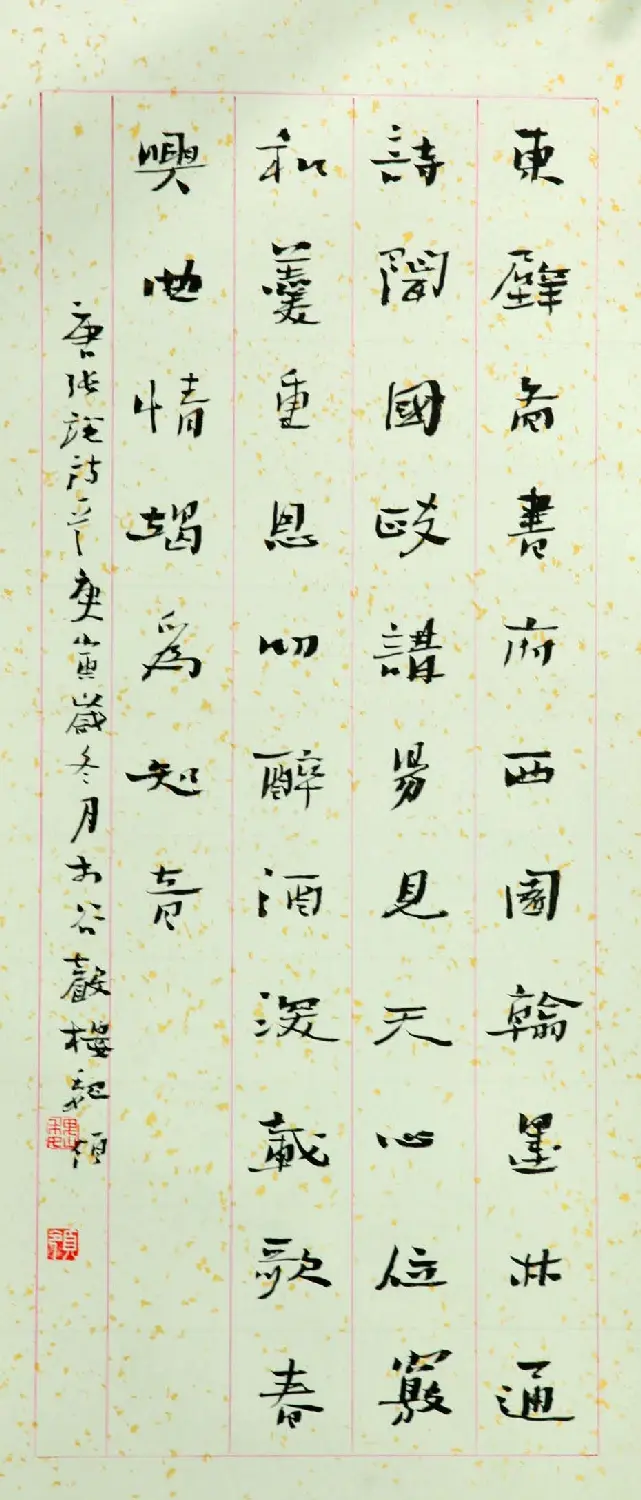 東壁啚書府西園翰墨林通
詩聞國政講易見天心位竊
和羹重恩叨醉酒深載歌春
興曲情竭爲知音
唐張說詩庚寅歲冬月於谷聲樓